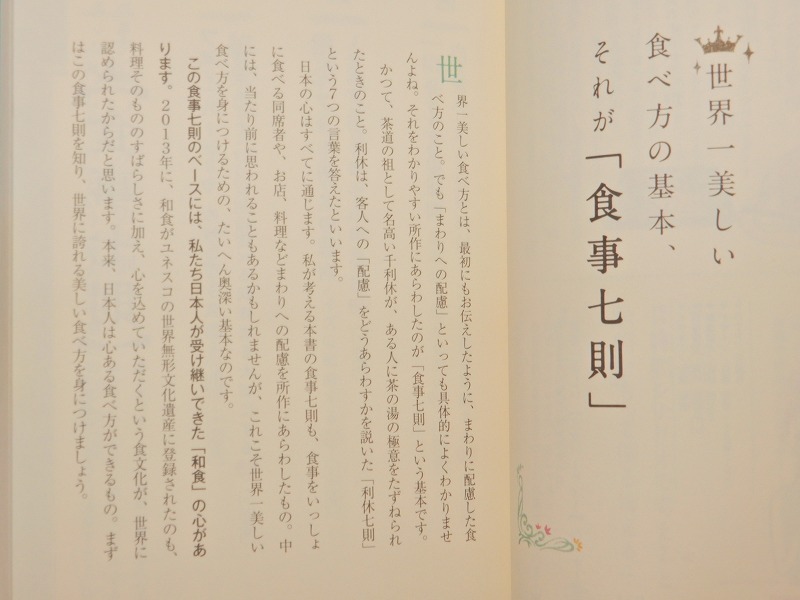 世界一美しい
食べ方の基本、
それが「食事七則」
世界一美しい食べ方とは、最初にもお伝えしたように、まわりに配慮した食
べ方のこと。でも「まわりへの配慮」といっても具体的によくわかりませ
んよね。それをわかりやすい所作にあらわしたのが「食事七則」という基本です。
かつて、茶道の祖として名高い千利休が、ある人に茶の湯の極意をたずねられ
たときのこと。利休は、客人への「配慮」をどうあらわすかを説いた「利休七則」
という7つの言葉を答えたといいます。
日本の心はすべてに通じます。私が考える本書の食事七則も、食事をいっしょ
に食べる同席者や、お店、料理などまわりへの配慮を所作にあらわしたもの。中
には、当たり前に思われることもあるかもしれませんが、これこそ世界一美しい
食べ方を身につけるための、たいへん奥深い基本なのです。
この食事七則のベースには、私たち日本人が受け継いできた「和食」の心があ
ります。2013年に、和食がユネスコの世界無形文化遺産に登録されたのも、
料理そのもののすばらしさに加え、心を込めていただくという食文化が、世界に
認められたからだと思います。本来、日本人は心ある食べ方ができるもの。まず
はこの食事七則を知り、世界に誇れる美しい食べ方を身につけましょう。